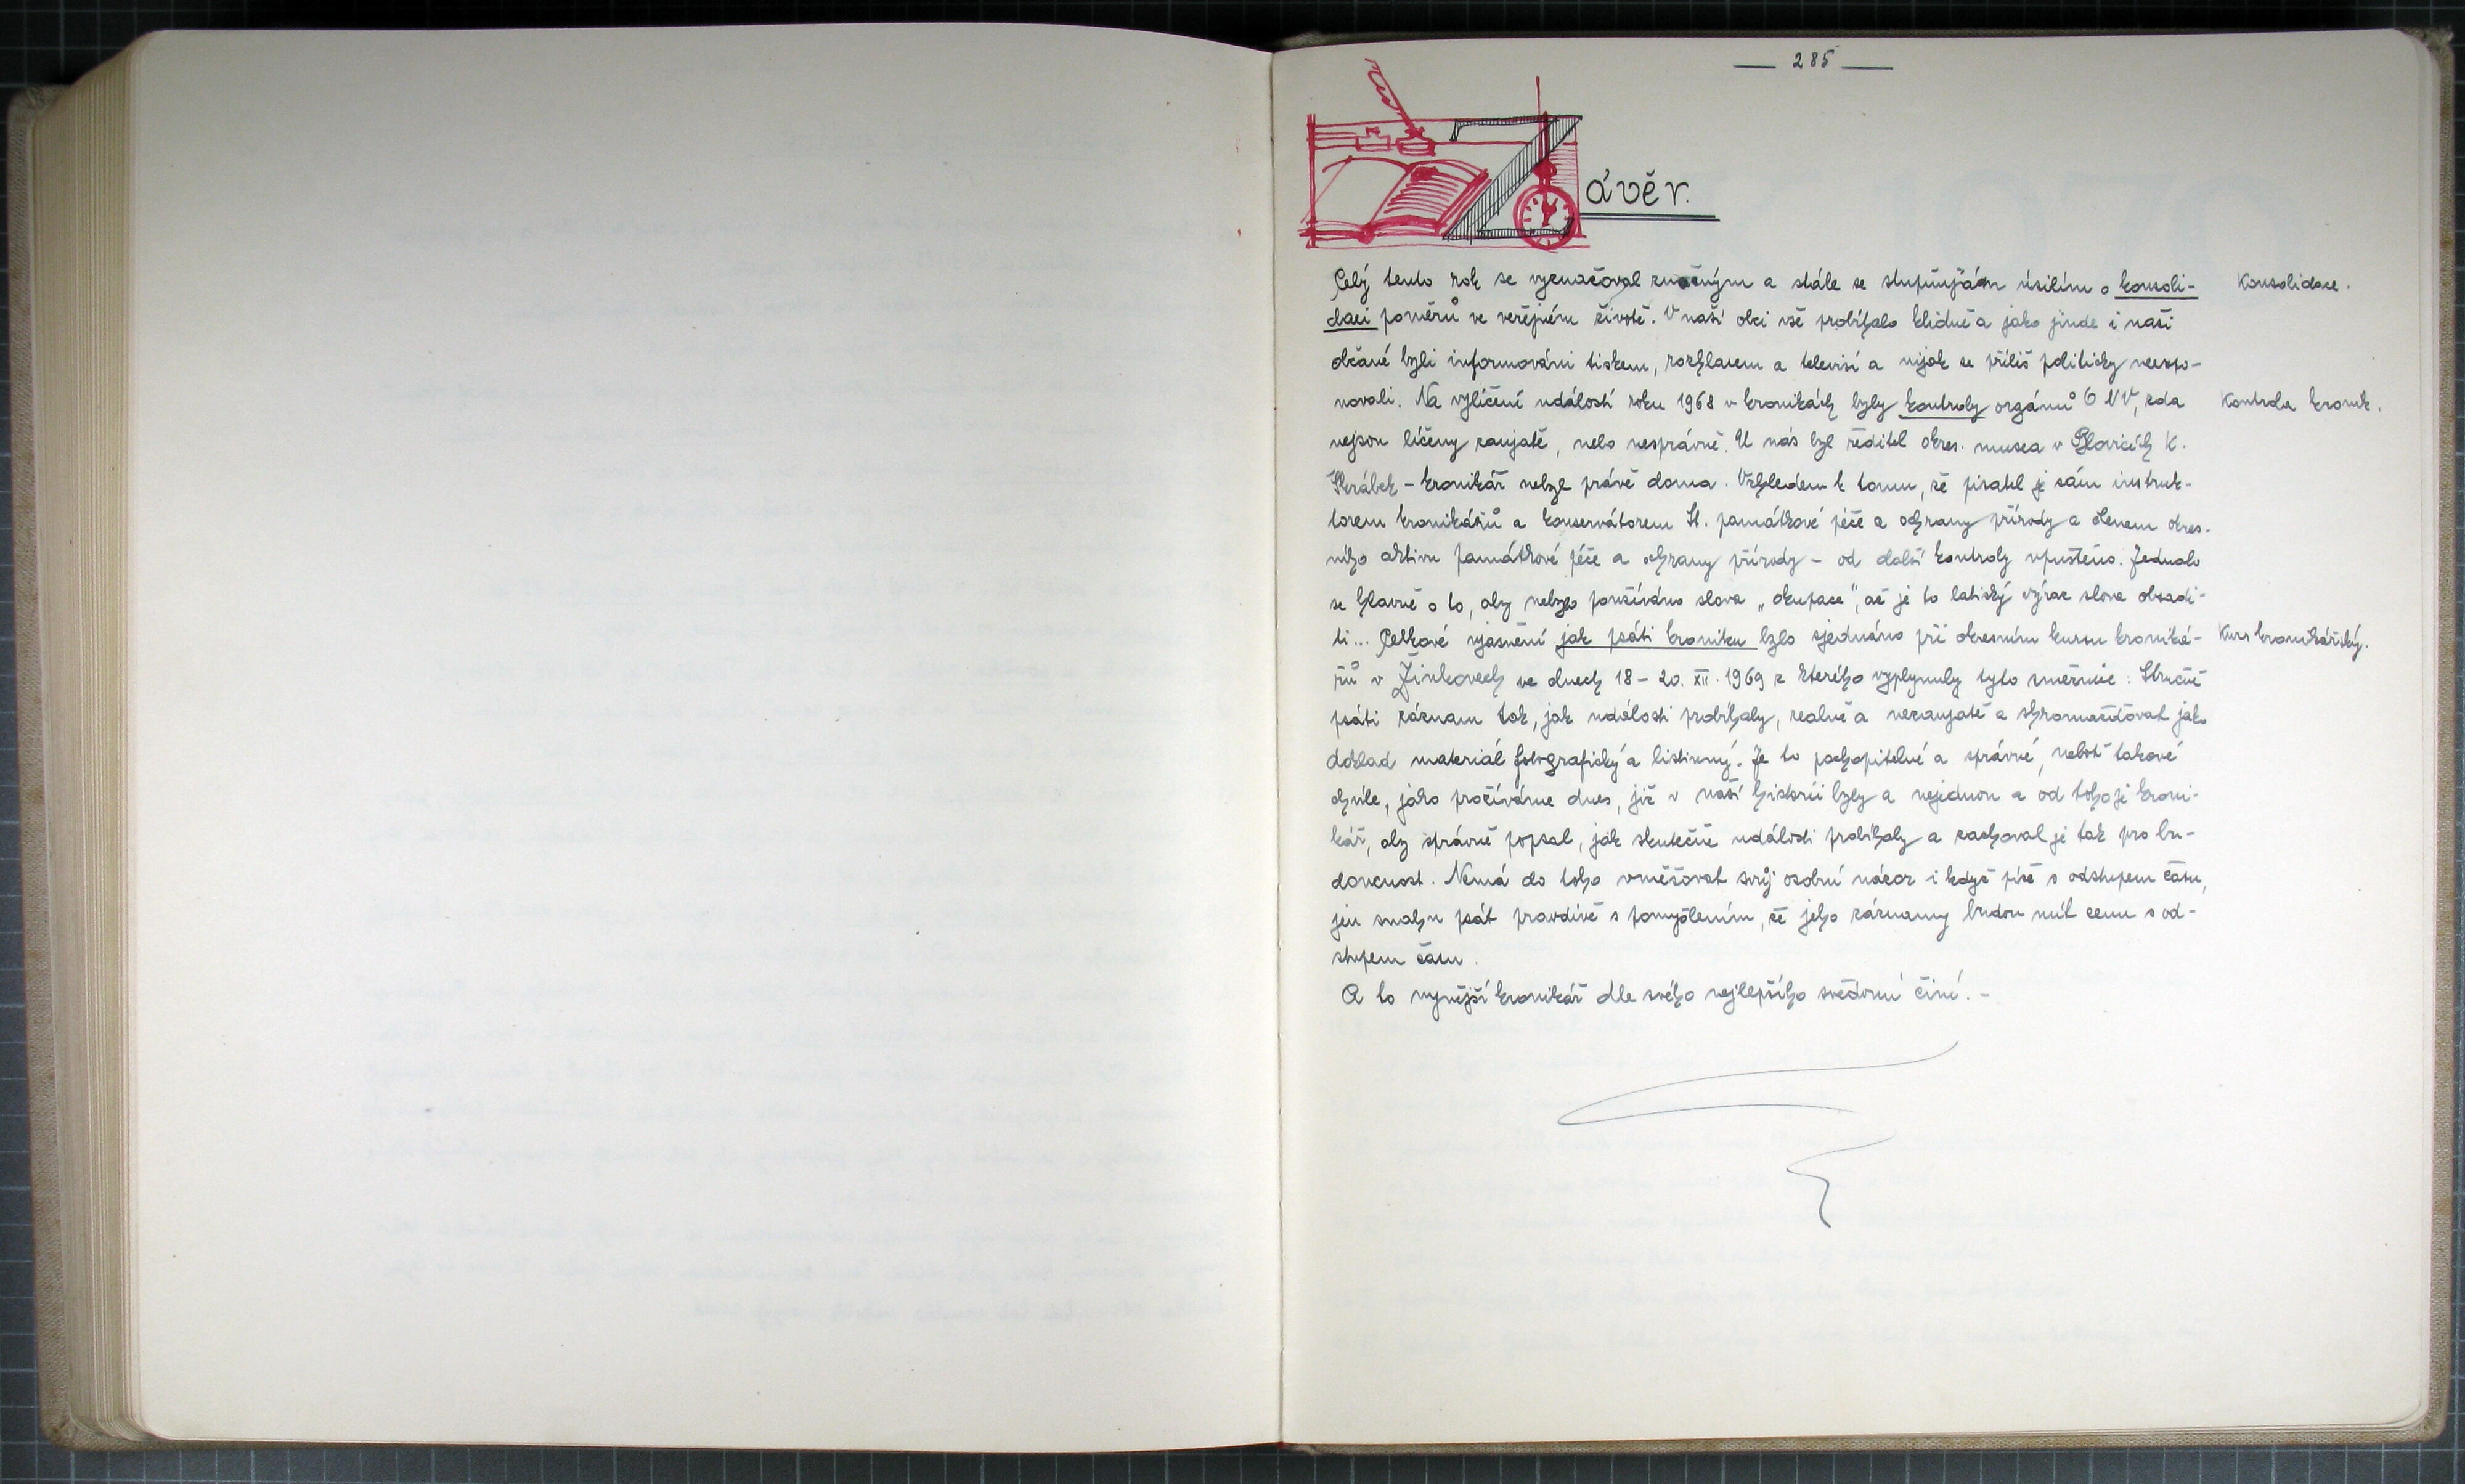 — 285 —
Závěr.
Celý tento rok se vyznačoval značným a stále se stupňujícím úsilím o konsoli-
daci poměrů ve veřejném životě. V naší obci vše probíhalo klidně a jako jinde i naši
občané byli informováni tiskem, rozhlasem a televisí a nijak se příliš politicky neexpo-
novali. Na vylíčení událostí roku 1968 v kronikách byly kontroly orgánů ONV, zda
nejsou líčeny zaujatě, nebo nesprávně. U nás byl ředitel okres. musea v Blovicích K.
Škrábek - kronikář nebyl právě doma. Vzhledem k tomu, že pisatel je sám instruk-
torem kronikářů a konservátorem St. památkové péče a ochrany přírody a členem okres-
ního aktivu památkové péče a ochrany přírody - od další kontroly upuštěno. Jednalo
se hlavně o to, aby nebylo používáno slova „okupace", ač je to latiský výraz slova obsadi-
ti... Celkové vyjasnění jak psáti kroniku bylo sjednáno při okresním kursu kroniká-
řů v Žinkovech ve dnech 18 - 20. XII. 1969 z kterého vyplynuly tyto směrnice: Stručně
psáti záznam tak, jak události probíhaly, realně a nezaujatě a shromažďovat jako
doklad materiál fotografický a listinný. Je to pochopitelné a správné, neboť takové
chvíle, jako prožíváme dnes, již v naší historii byly a nejednou a od toho je kroni-
kář, aby správně popsal, jak skutečně události probíhaly a zachoval je tak pro bu-
doucnost. Nemá do toho vměšovat svůj osobní názor i když píše s odstupem času,
jen snahu psát pravdivě s pomyšlením, že jeho záznamy budou mít cenu s od-
stupem času.
A to nynější kronikář dle svého nejlepšího svědomí činí. -
Konsolidace.
Kontrola kronik.
Kurs kronikářský.